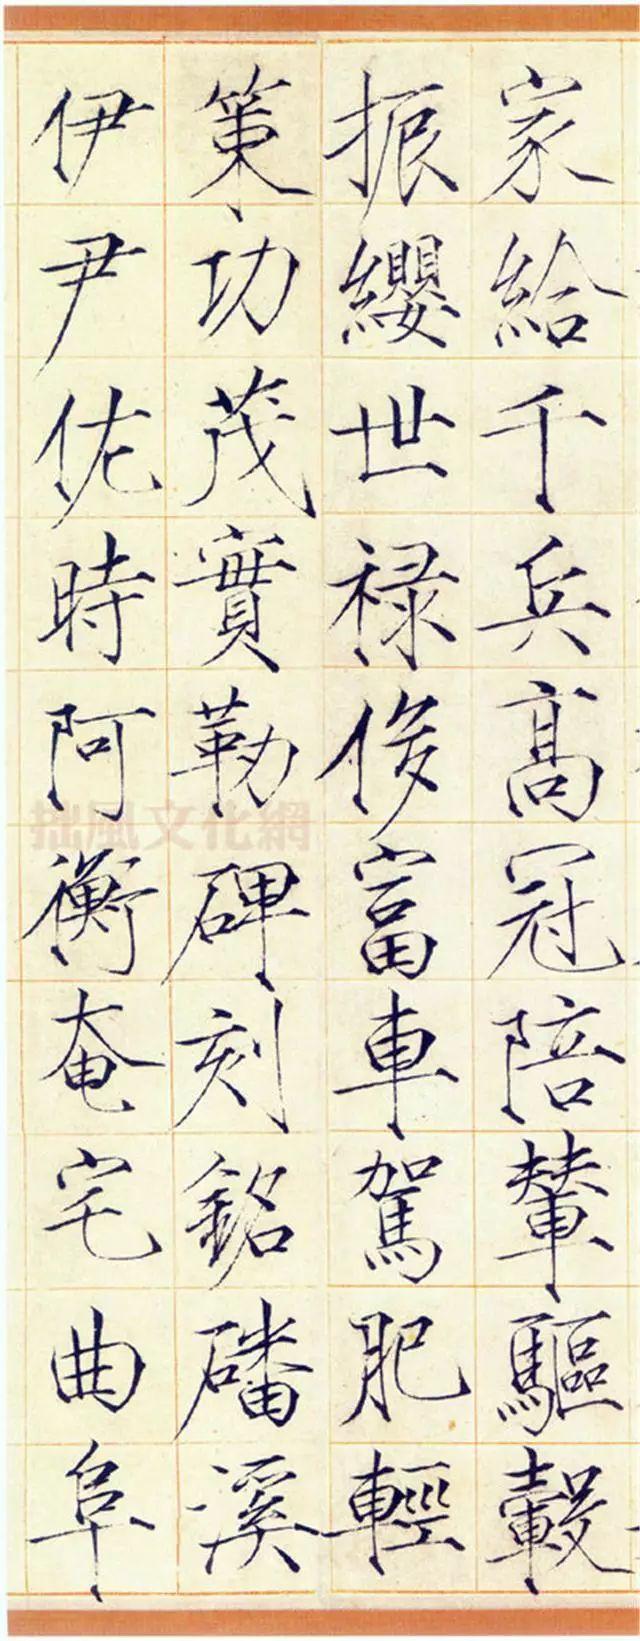 家給千兵高冠陪輦驅轂
振纓世禄侈富車駕肥輕
策功茂實勒碑刻銘磻溪
伊尹佐時阿衡奄宅曲阜
拙風文化網